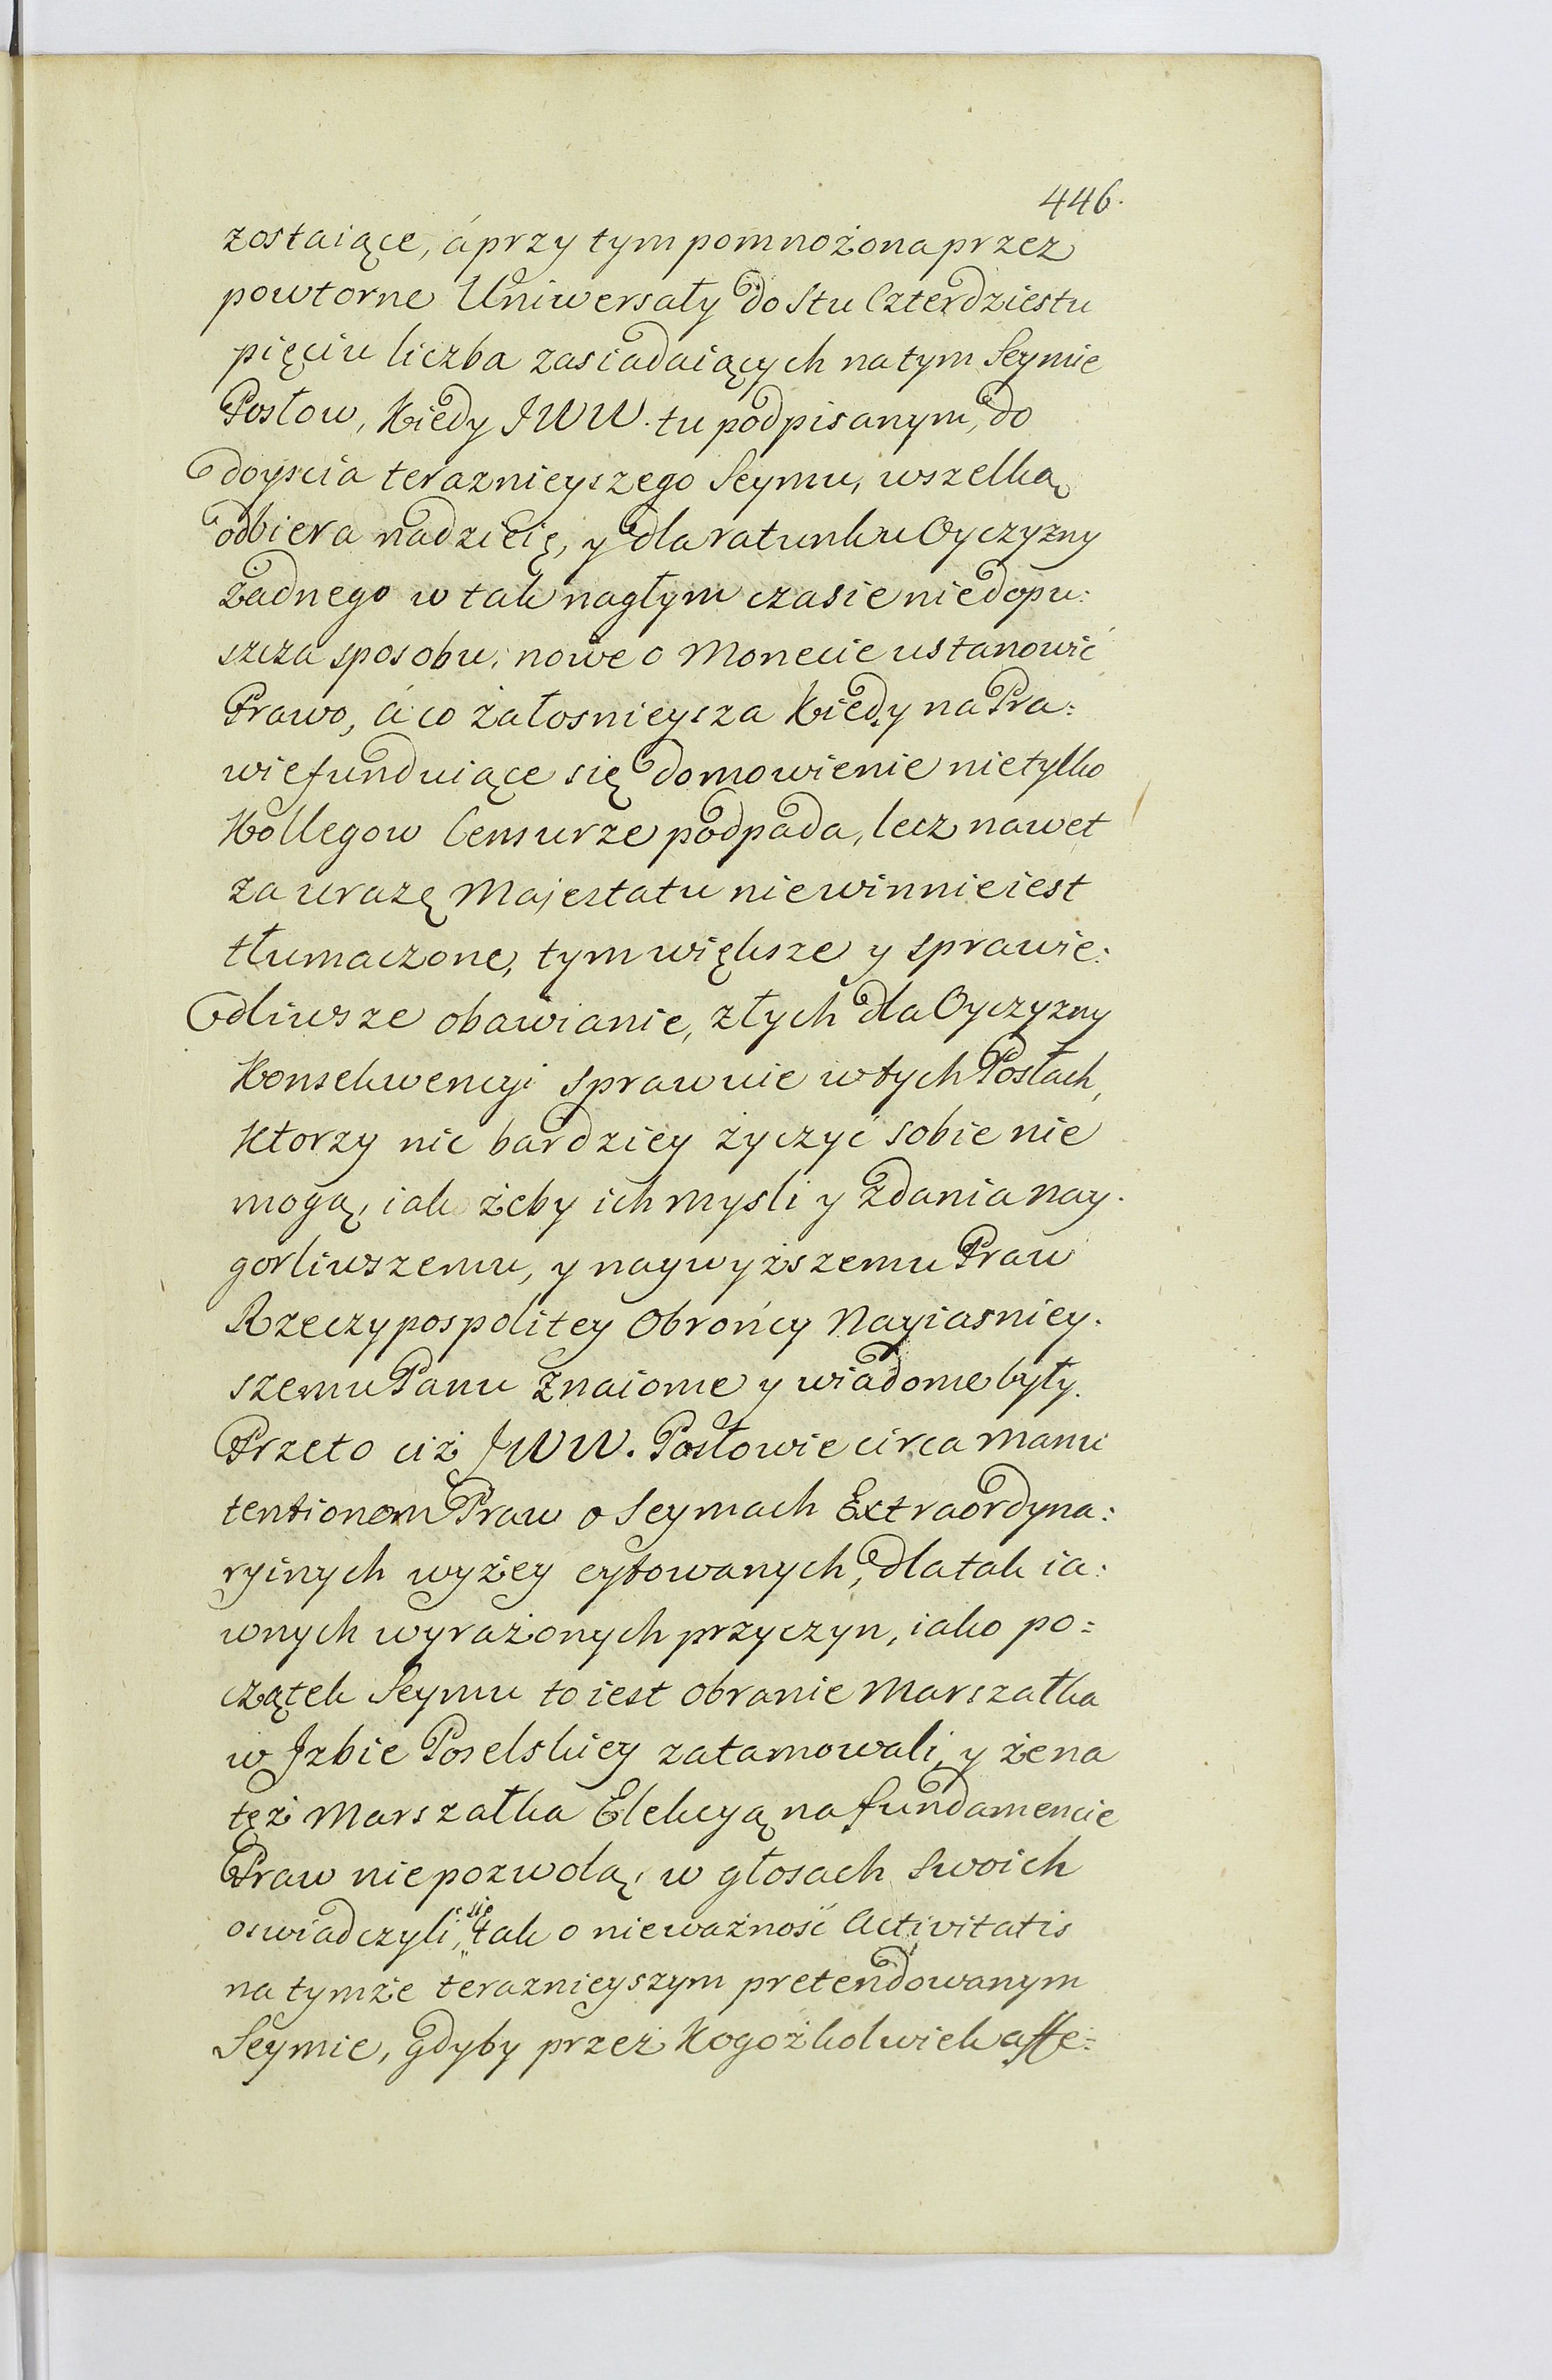 446.
zostaiące, á przy tym pomnożona przez
powtorne Uniwersały do Stu Czterdziestu
pięciu liczba zasiadaiących na tym Seymie
Posłow, Kiedy JWW. tu podpisanym, do
doyscia teraznieyszego Seymu, wszelką
odbiera nadzieię, y dla ratunku Oyczyzny
żadnego w tak nagłym czasie niedopu:
szcza sposobu, nowe o Monecie ustanowić
Prawo, á co żałosnieysza Kiedy na Pra:
wie funduiące się domowienie nietylko
Kollegow Censurze podpada, lecz nawet
za urazę Majestatu niewinnie iest
tłumaczone, tym większe y sprawie:
dliwsze obawianie, złych dla Oyczyzny
Konsekwencyi sprawuie w tych Posłach,
Ktorzy nic bardziey życzyć sobie nie
mogą, iak żeby ich mysli y zdania nay.
gorliwszemu, y naywyższemu Praw
Rzeczypospolitey Obrońcy Nayiasniey.
szemu Panu Znaiome y wiadome były.
Przeto ciż JWW. Posłowie circa manu
tentionem Praw o Seymach Extraordyna:
ryinych wyżey cytowanych, dla tak ia:
wnych wyrażonych przyczyn, iako po=
czątek Seymu to iest obranie Marszałka
w Jzbie Poselskiey zatamowali, y że na
tęż Marszałka Elekcyą na fundamencie
Praw niepozwolą, w głosach swoich
oswiadczyli się, tak o nieważność Activitatis
na tymże teraznieyszym pretendowanym
Seymie, gdyby przez Kogożkolwiek affe=